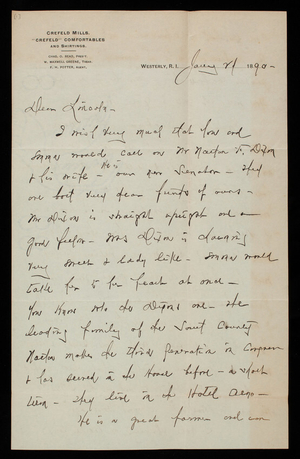 CREFELD MILLS.
"CREFELD" COMFORTABLES
AND SHIRTINGS.
WESTERLY, R. I. Jany 21 1890-
Dear Lincoln-
I wish very much that you and
would call on Mr Nathan F. Dixon
& his wife - He is our new Senator - They
are both very dear friends of ours -
Mr Dixon is straight upright and a
good fellow - Mrs Dixon is charming
very sweet & lady like - would
take to her heart at once -
You know who the Dixons are - the
leading family of the South County
Nathan makes the third generation in Congress
& has served in the House before - a short
term - They live in the Hotel
He is a great farmer and